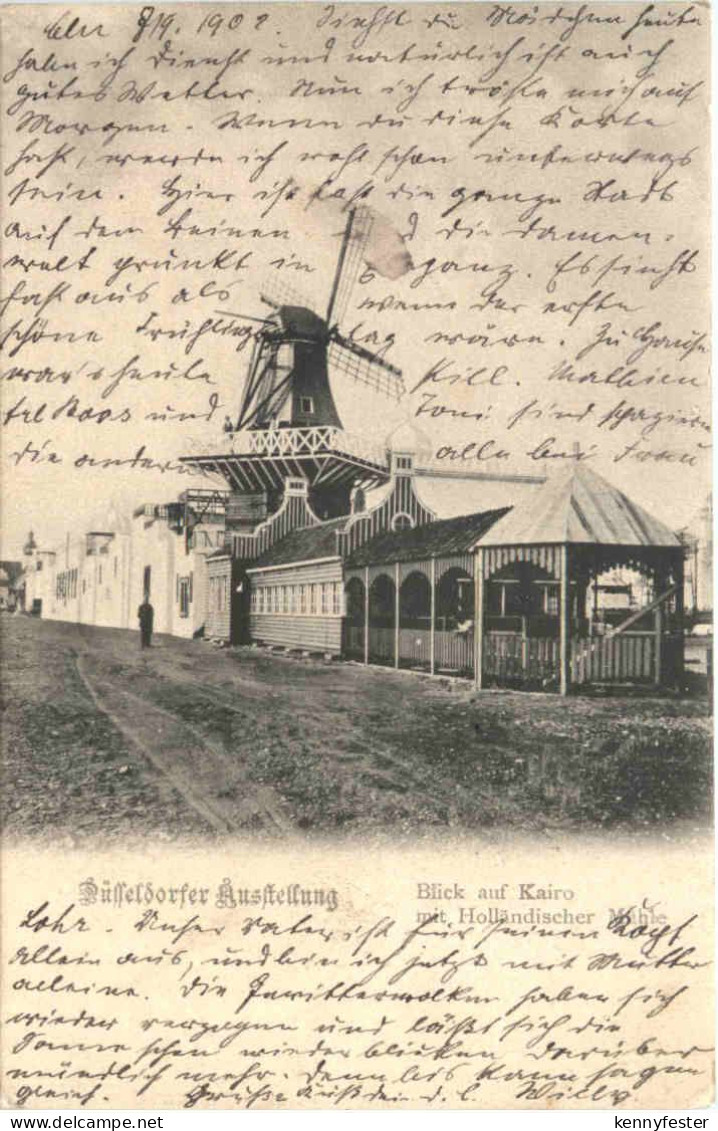 8/9. 1902. Siehst du Mädchen heute
haben ich Dienst und natürlich ist auch
gutes Wetter. Nun ich tröste mich auf
Morgen. Wenn du diese Karte
hast, werde ich wohl schon unterwegs
sein. Hier ist fast die ganze Stadt
auf den Beinen und die Damen-
welt prunkt in ganz. Es sieht
fast aus als wenn der erste
schöne Frühlingstag wäre. Zu Hause
war's heute still. Mathien
Roos und Toni sind spazieren
die andern alle bei Frau
Düsseldorfer Ausstellung
Blick auf Kairo
mit Holländischer Mühle
Lohr. Unser Vater ist für seinen Kopf
allein aus, und bin ich jetzt mit Mutter
alleine. Die Gewitterwolken haben sich
wieder verzogen und läßt sich die
Sonne schon wieder blicken darüber
mündlich mehr. Denn bis kann sagen
gleich. Grüße Kuß dein d. l. Willy
kennyfester